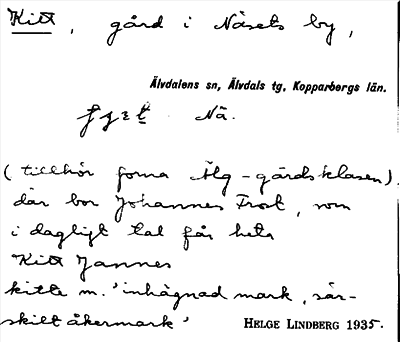 Kitt, gård i Näsets by,
Älvdalens sn, Älvdals tg, Kopparbergs län.
Nä.
(tillhör forna Älg-gårdsklasen).
där bor Johannes Frost, som
i dagligt tal får heta
Kitt Jannes
kitte m. 'inhägnad mark, sär-
skilt åkermark'
HELGE LINDBERG 1935.